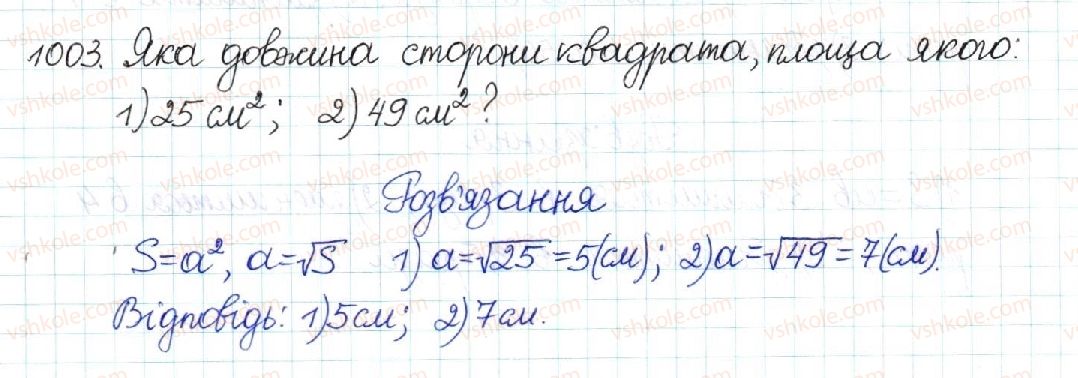 1003. Яка довжина сторони квадрата, площа якого:
1) 25 см²; 2) 49 см²?
Розв'язання
S=a², a=√S 1) a=√25=5(см); 2) a=√49=7(см).
Відповідь: 1) 5 см; 2) 7 см.